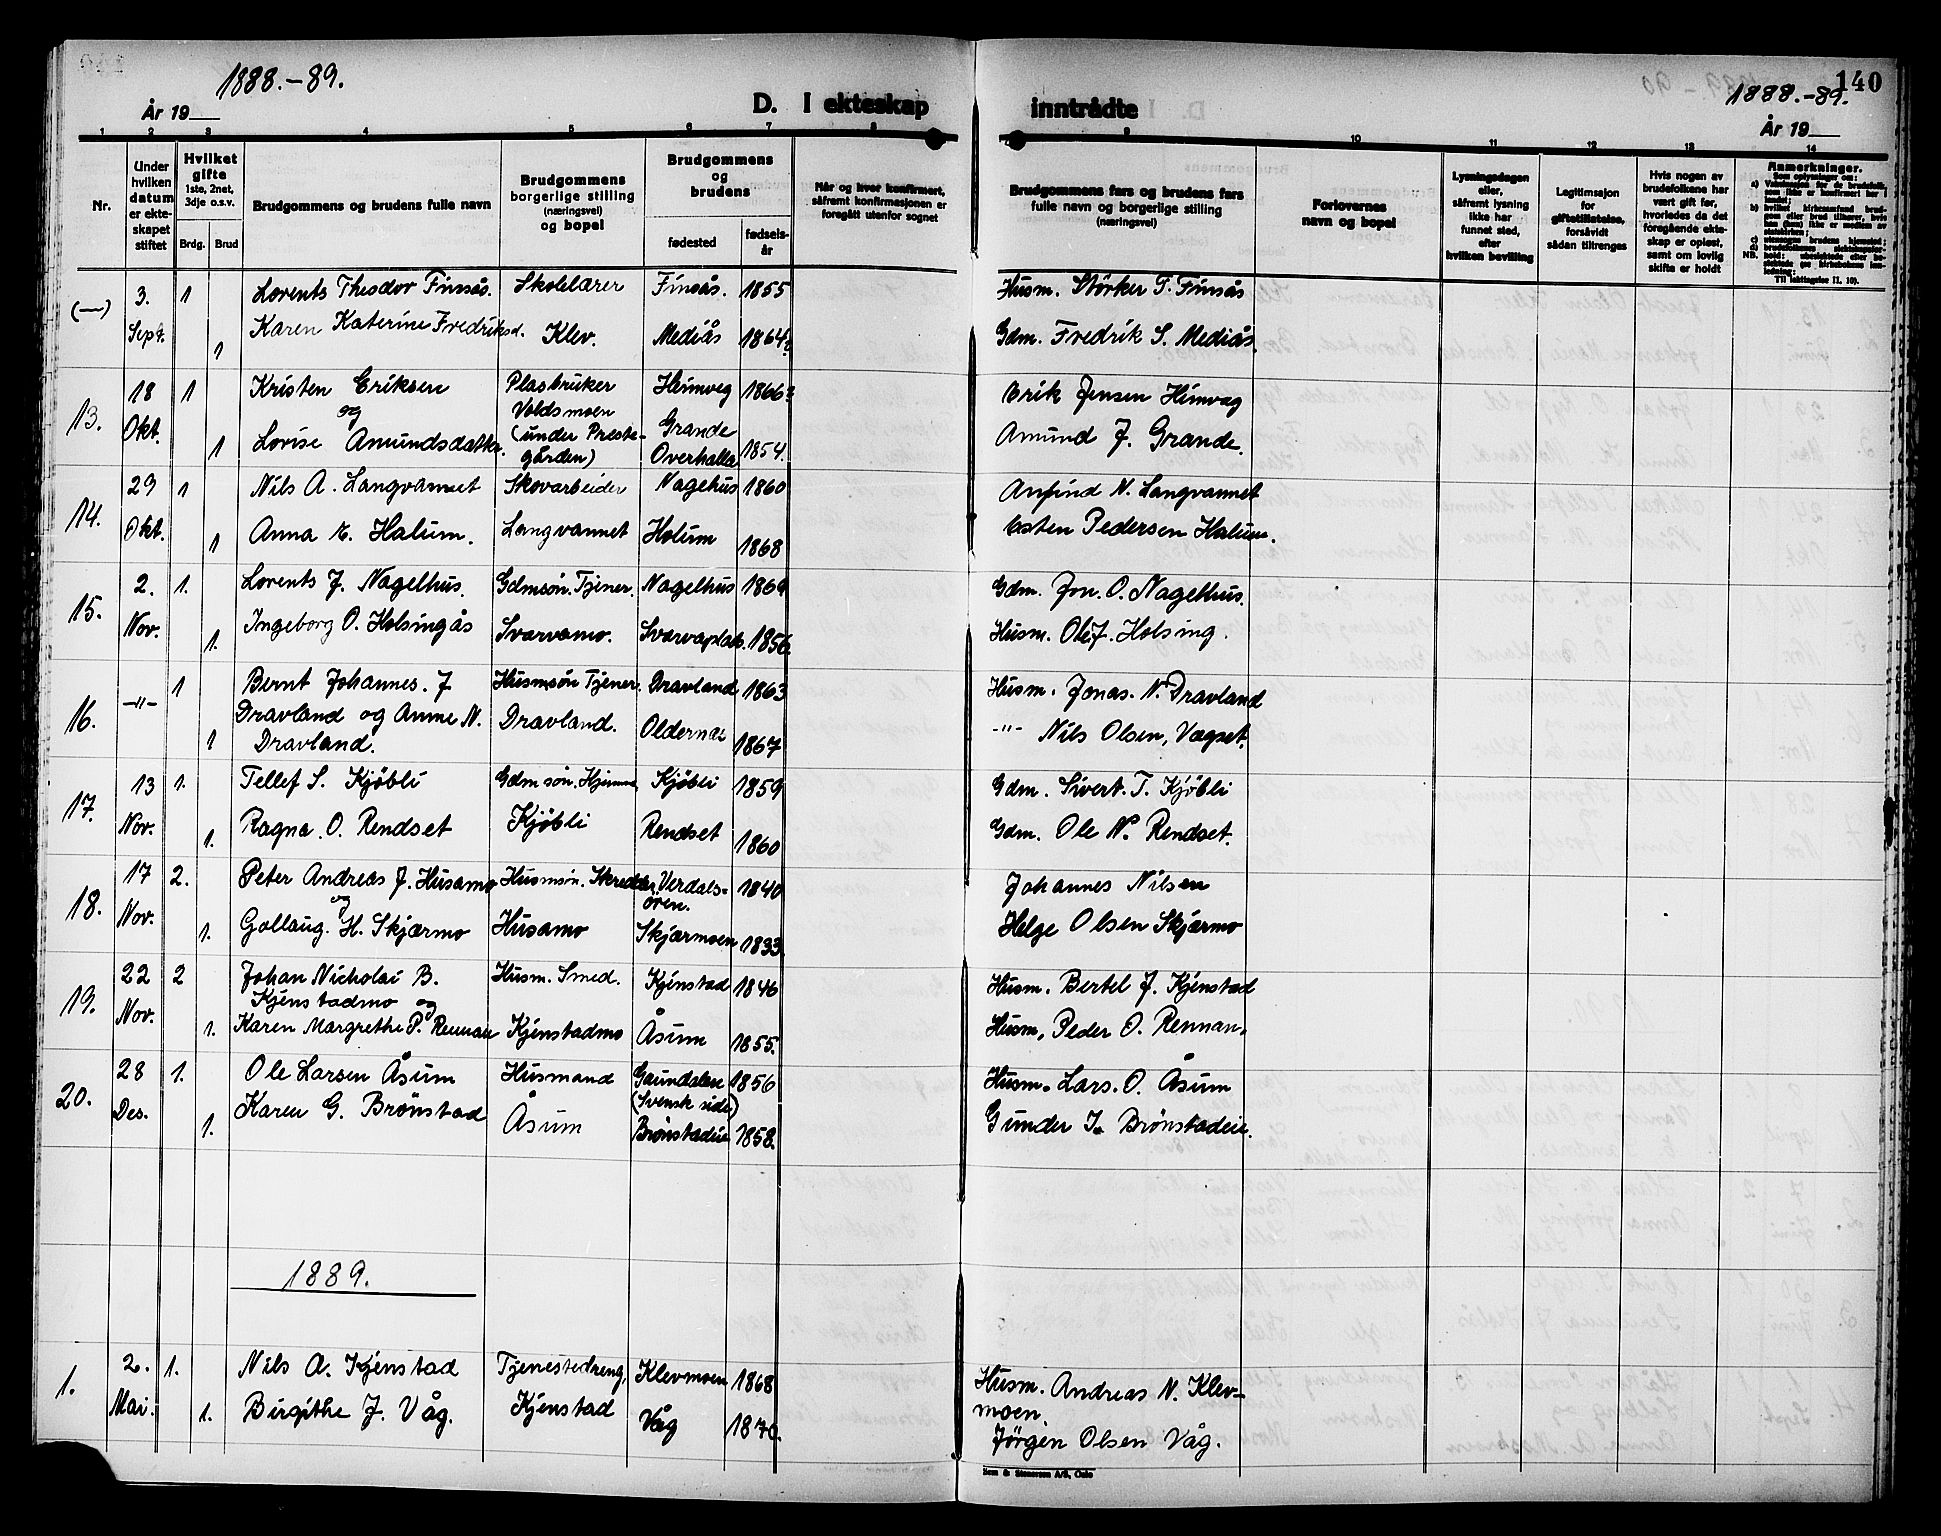 1888.-89.
År 19
D. I ekteskap
inntrådte
140
1888.-89.
År 19
1 2 3 4 5 6 7 8 9 10 11 12 13 14
Nr.
Under hvilken datum er ekteskapet stiftet
Hvilket gifte 1ste, 2net, 3dje o.s.v.
Brdg. Brud
Brudgommens og brudens fulle navn
Brudgommens borgerlige stilling (næringsvei) og bopel
Brudgommens og brudens
fødested
fødselsår
Når og hvor konfirmert, såfremt konfirmasjonen er foregått utenfor sognet
Brudgommens fars og brudens fars fulle navn og borgerlige stilling (næringsvei)
Forlovernes navn og bopel
Lysningsdagen eller, såfremt lysning ikke har funnet sted, efter hvilken bevilling
Legitimsajon for giftetillatelse, forsåvidt sådan tiltrenges
Hvis nogen av brudefolkene har vært gift før, hvorledes da det foregående ekteskap er opløst, samt om lovlig skifte er holdt
Anmerkninger.
(—) 3. 1 Lorents Theodor Finsås. Skolelærer Finsås. 1855 Husm. Størker T. Finsås
Sept. 1 Karen Katerine Fredriksd. Klev. Mediås 1864? Gdm. Fredrik S. Mediås.
13. 18 1 Kristen Eriksen Plasbruker Heimveg 1866? Erik Jensen Himvag
og Voldsmoen
Okt. 1 Lovise Amundsdatter. (under Prestegården) Grande Overhalla 1854. Amund J. Grande.
14. 29 1 Nils A. Langvannet Skovarbeider Nagehus 1860 Anfind N. Langvannet
Okt. 1 Anna E. Halum. Langvannet Holum 1868 Esten Pedersen Halum.
15. 2. 1. Lorents J. Nagelhus. Gdmsøn. Tjener. Nagelhus 1869 Gdm. Jon. O. Nagelhus.
Nov. 1. Ingeborg O. Holsingås Svarvamo. 1856. Husm. Ole J. Holsing.
16. -"- 1 Bernt Johannes. J Husmsøn Tjener. Dravland 1863 Husm. Jonas. N. Dravland
Dravland og Anne N. Dravland. Oldernæs
1 Dravland. 1867 -"- Nils Olsen, Vægset.
17. 13 1. Tellef S. Kjøbli Gdm søn. Kjøbli 1859 Gdm. Sivert. T. Kjøbli
Nov. 1. Ragna. O. Rendset Kjøbli Rendset 1860 Gdm. Ole N. Rendset.
18. 17 2. Peter Andreas J. Husamo Husmsøn. Skredder Verdalsøren. 1840 Johannes Nilsen
og
Nov. 1. Gollaug. H. Skjærmo Husamo Skjærmoen 1833. Helge Olsen Skjærmo
19. 22 2 Johan Nicholai B. Husm. Smed. Kjenstad 1846 Husm. Bertel J. Kjenstad
Kjenstadmo og
Nov. 1. Karen Margrethe P. Rennan Kjenstadmo Åsum 1855. Husm. Peder O. Rennan.
20. 28 1. Ole Larsen Åsum Husmand Gaundalen (Svensk side) 1856 Husm. Lars. O. Åsum
Des. 1. Karen G. Brønstad Åsum Brønstadeie 1858. Gunder I. Brønstadeie.
1889.
1. 2. 1. Nils A. Kjenstad Tjenestedreng, Klevmoen 1868 Husm. Andreas N. Klevmoen.
Mai. 1. Birgithe J. Våg. Kjenstad Våg 1870. Jørgen Olsen Våg.
Sem & Stenersen A/S, Oslo